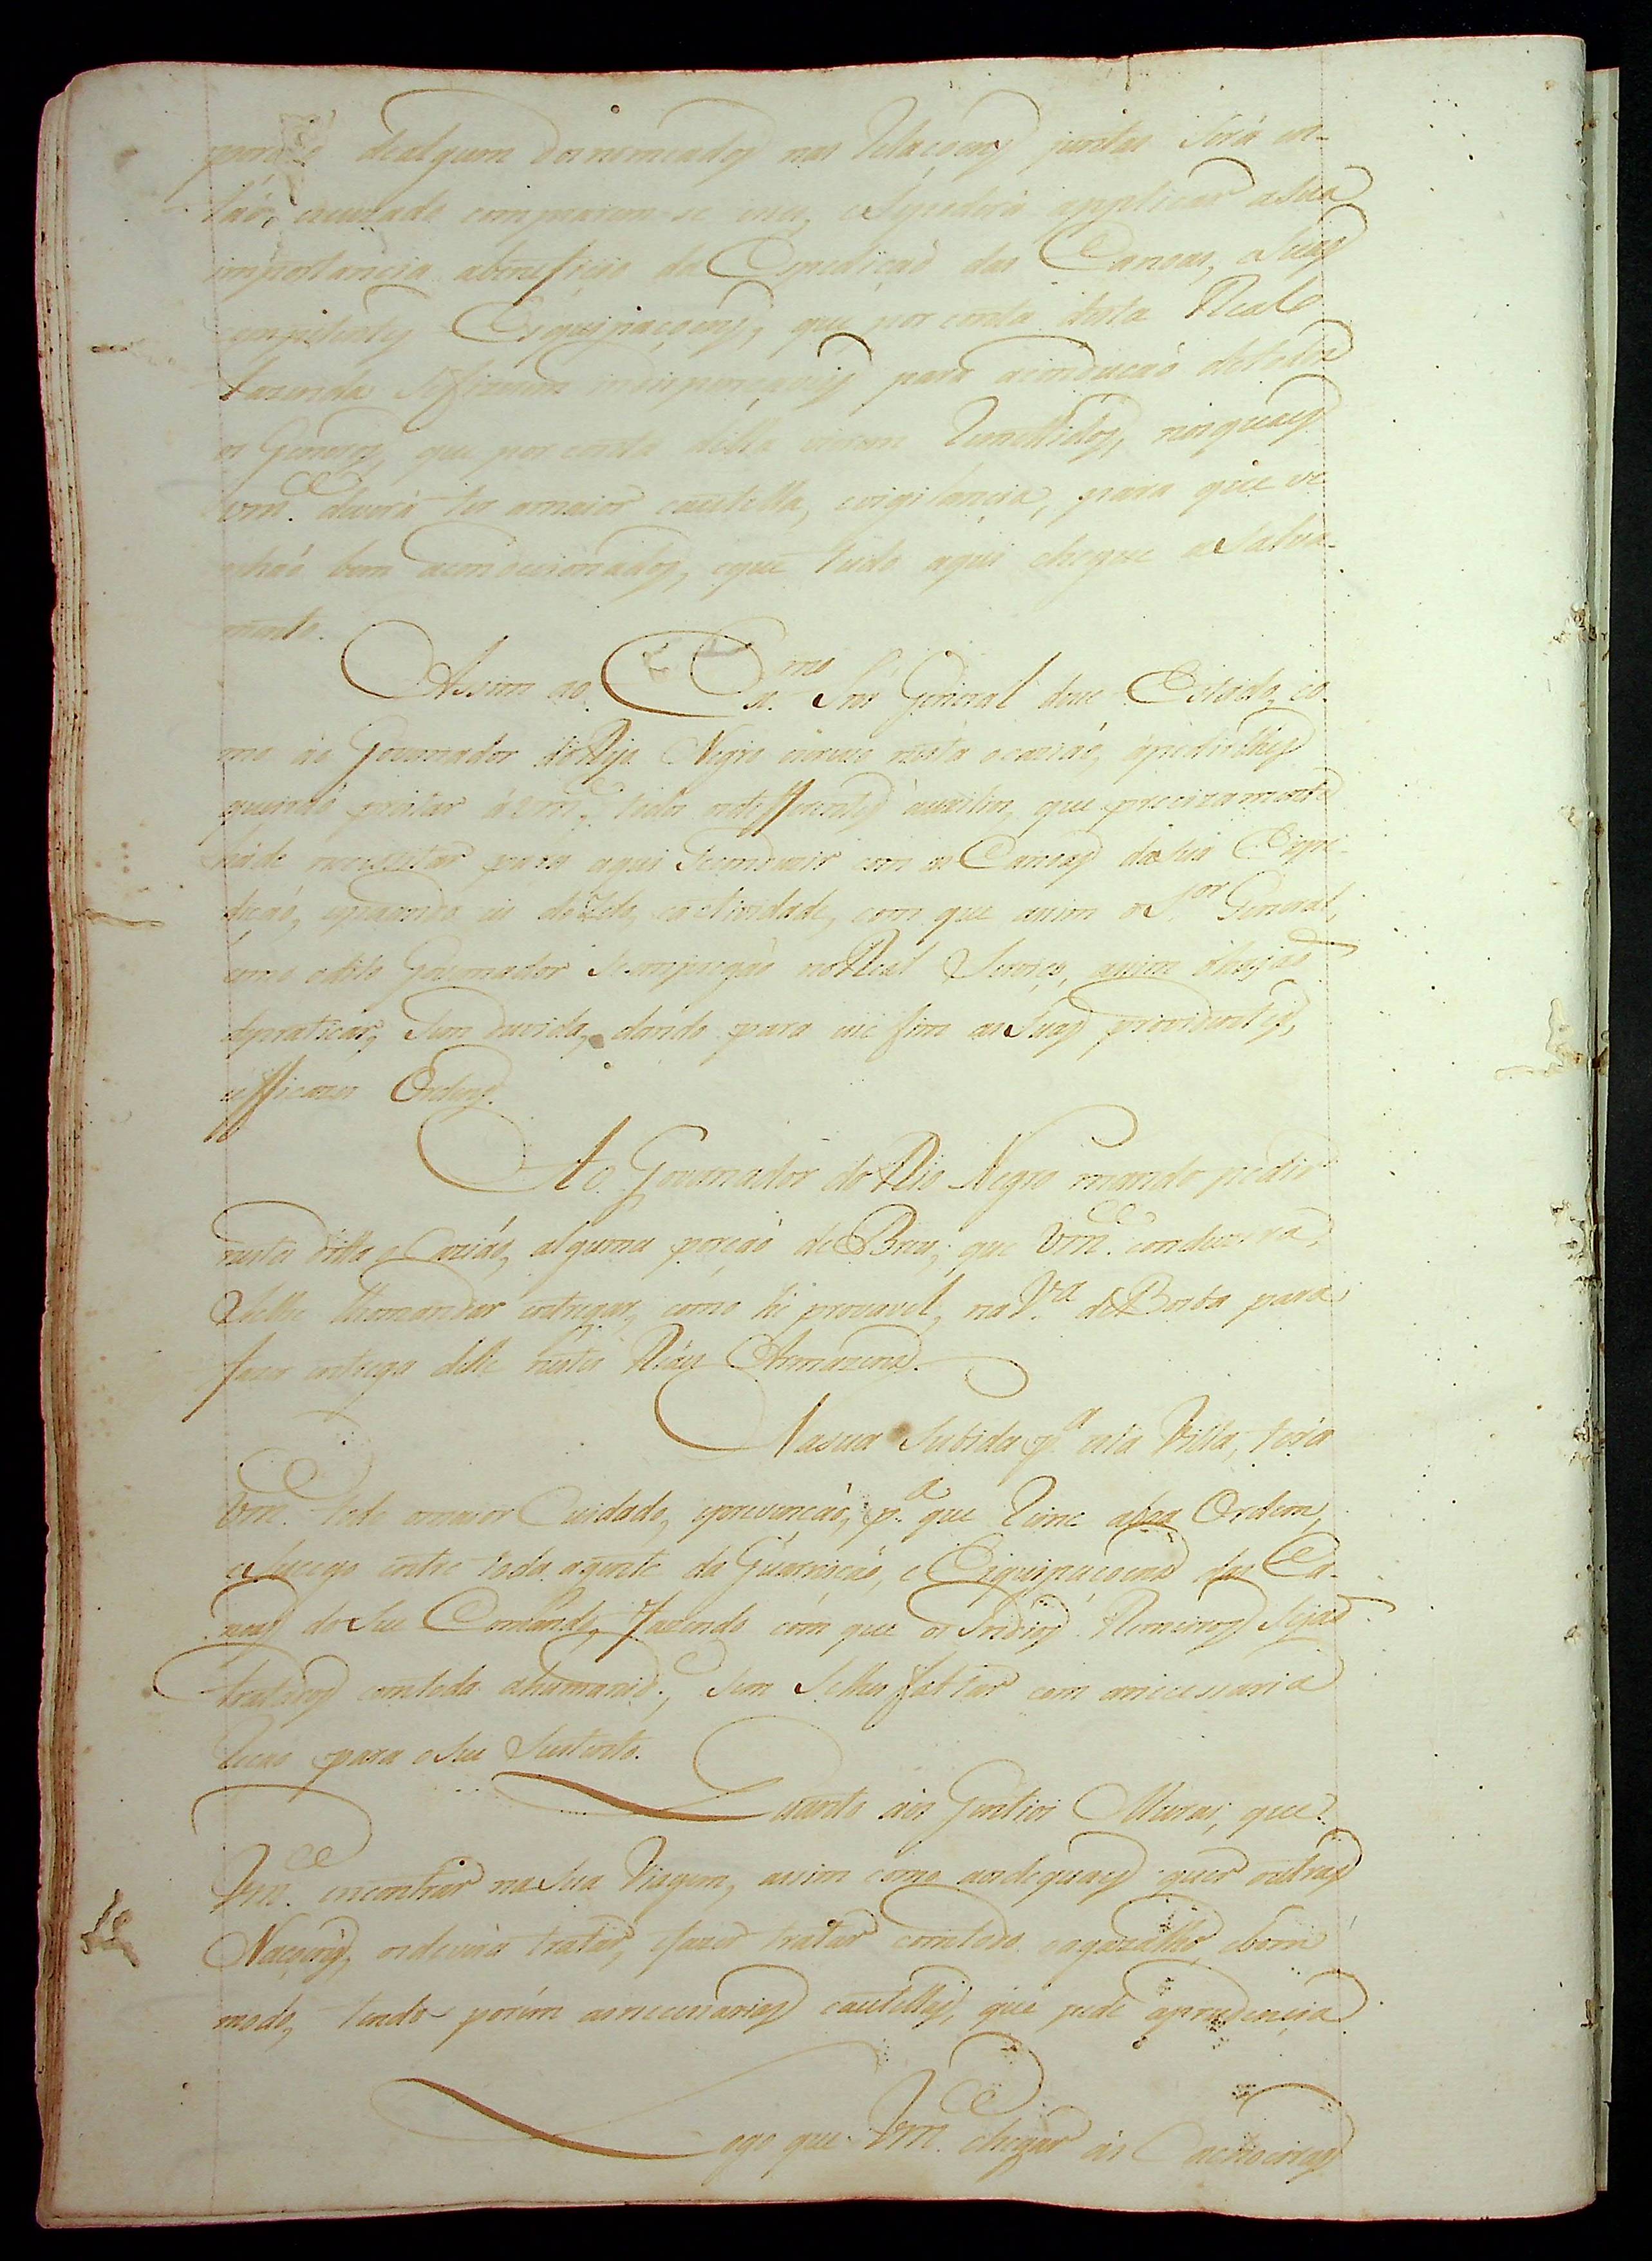 dealgum dos nomeados nas Relacoens juntas será en-
taõ, escuzado comprarem-se e Sepoderá applicar asua
importancia abeneficio da Expediçaõ das Canoas, e Suas
competentes Esquipacoens, que por conta desta Real
Fazenda Sefizerem indispençaveis para aconducaõ detodos
os Generos, que por conta della vierem Remettidos, nosquaes
Vm.ce deverá ter amaior cautella, evigilancia, para que ve
nhaõ bem acondicionados, eque tudo aqui chegue aSalva-
mento.
Assim ao Ex.mo Snr General desse Estado, co-
mo ao Governador do Rio Negro escrevo nesta ocaziaõ, apedirlhes
queiraõ prestar á Vm.ce todos os auxilios, que precizamente
hade necessitar para aqui Seconduzir com as Canoas dasua Expe-
diçaõ, esperando eu dozelo, eactividade, com que assim o S.or General,
como odito Governador Seempregaõ noReal Serviço, assim ohajaõ
depraticar, Sem duvida, dando para esse fim as Suas providentes,
eefficazes Ordens.
Ao Governador do Rio Negro mando pedir
nesta dita ocaziaõ, alguma porçaõ de Breu, que Vm.ce conduzirá,
Selhe lhomandar entregar, como hé provavel, na V.a de Borba para
fazer entrega delle nestes Reáes Armazens.
Nasua Subida p.a esta Villa, terá
Vm.ce todo omaior Cuidado, eprevençaõ, p.a que Reine aboa Ordem,
eSucego entre toda agente da Guarniçaõ, e Esquipacoens das Ca-
noas do Seu Comando, fazendo com que os Indios Remeiros Sejaõ
tratados comtoda ahumanid.e, Sem Selhes faltar com anecessaria
Raçaõ para oSeu Sustento.
Quanto aos Gentios Muras, que
Vm.ce encontrar naSua Viagem, assim como aosdequaes quer outras
Nacoens, osdeverá tratar, efazer tratar comtodo oagazalho, ebom
modo, tendo porém asnecessarias cautellas, que pede aprudencia
Logo que Vm.ce chegar ás Cachoeiras